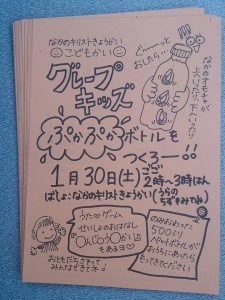 なかのキリストきょうかい
こどもかい
グループ
キッズ
ぷかぷかボトルを
つくろー!!
1月30日(土)ごご2時〜3時はん
ばしょ:なかのキリストきょうかい(うらの
ちずをみてね)
ぐーーっと
おしたら…
なかのオモチャが
上いったり、下いったり
うた♡ゲーム
せいしょのおはなし
もあるヨ♡
おともだちをさそって
みんなできてネ!
のみおわった
500ミリ
ペットボトルが
おうちにあったら
もってきてください